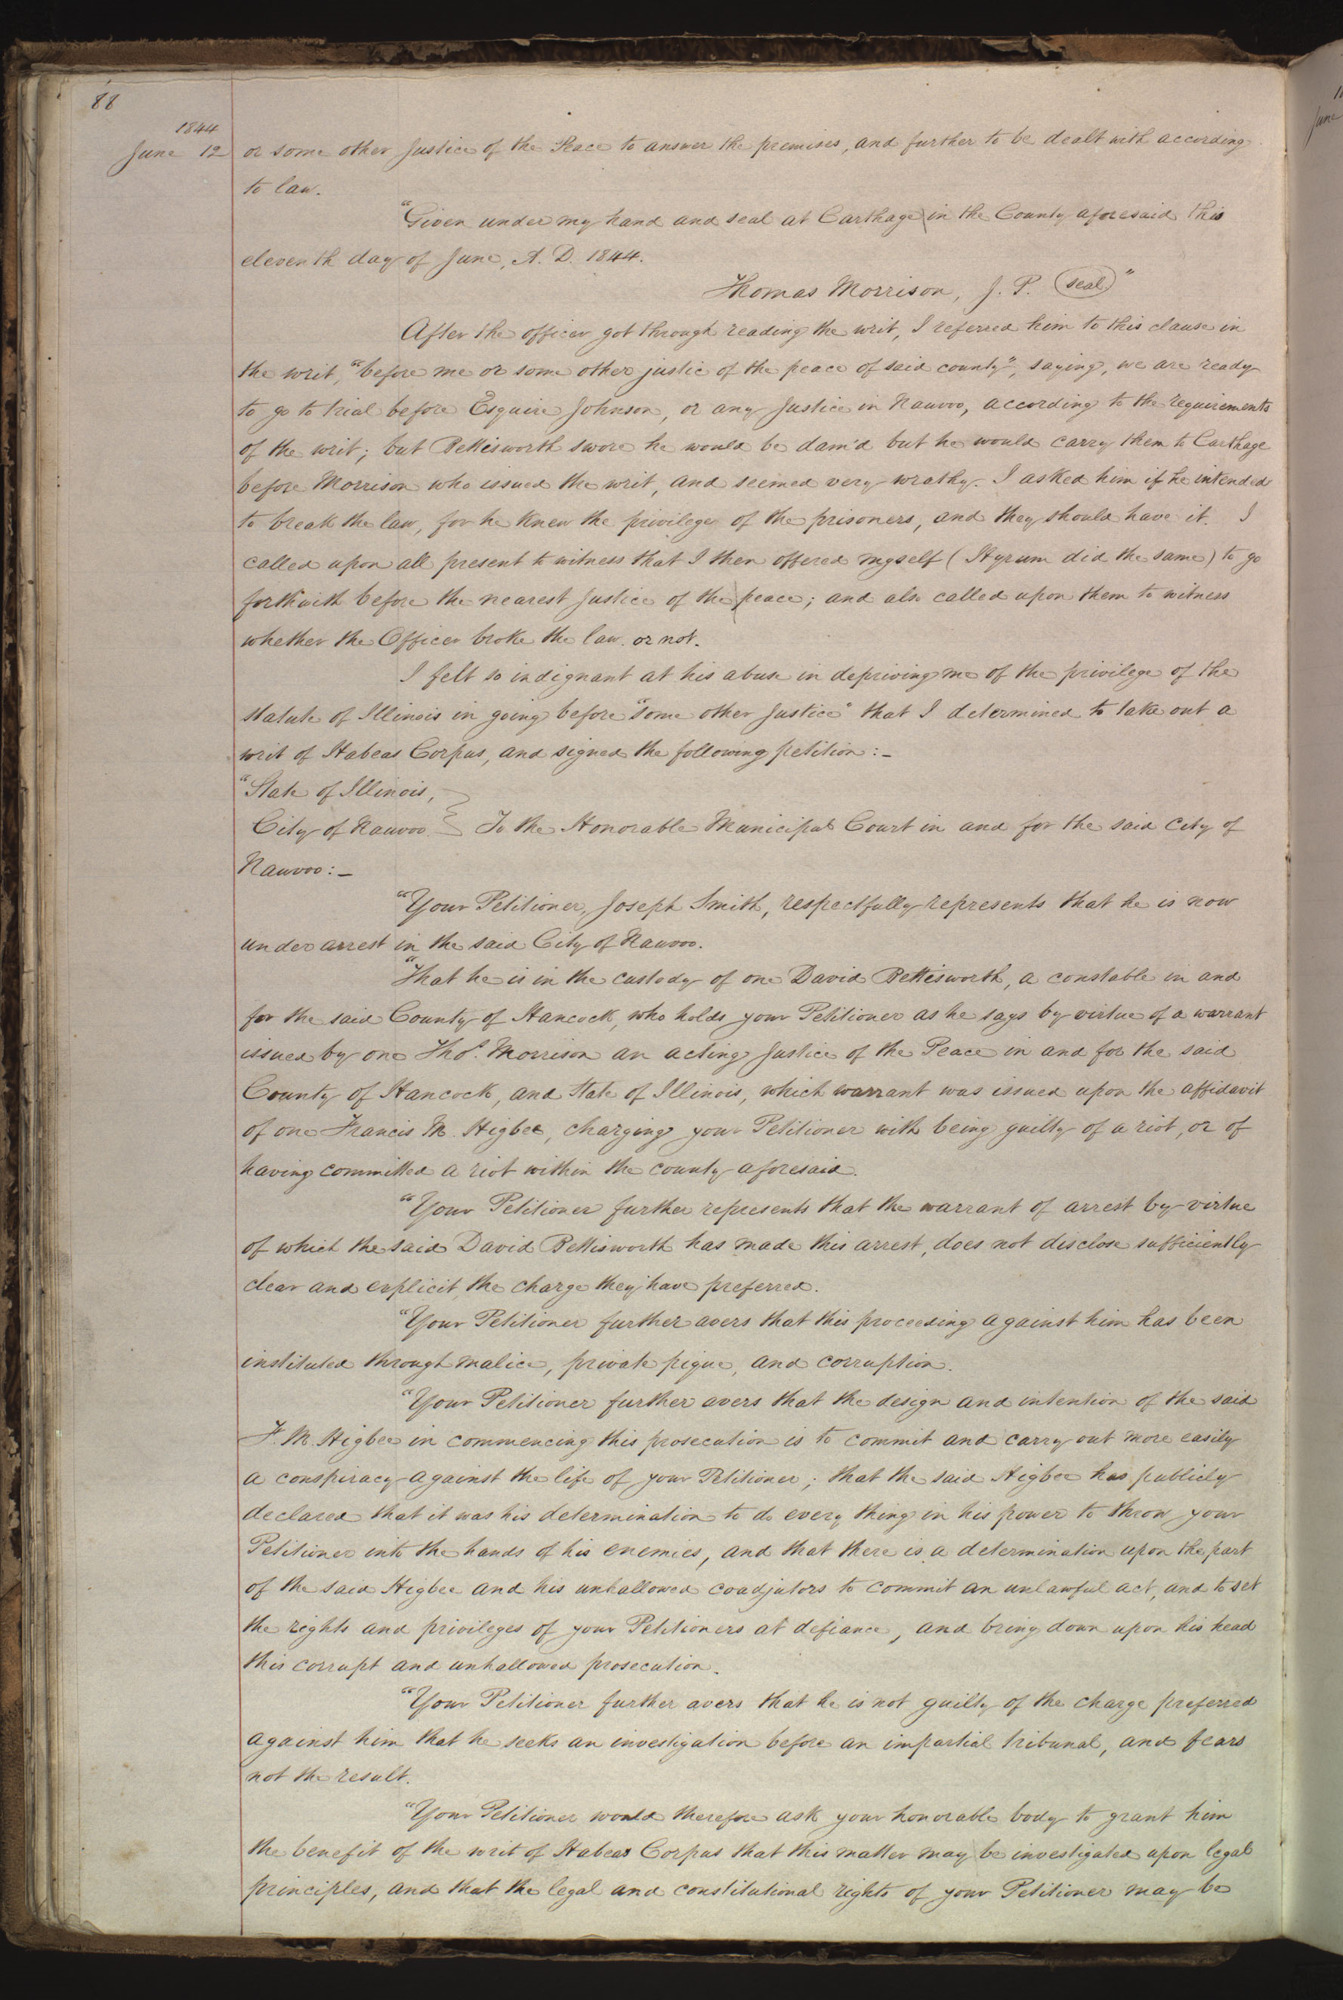 88
1844
June 12
or some other Justice of the Peace to answer the premises, and further to be dealt with according
to law.
"Given under my hand and seal at Carthage in the County aforesaid this
eleventh day of June, A. D. 1844.
Thomas Morrison, J. P. (seal)"
After the officer got through reading the writ, I referred him to this clause in
the writ, "before me or some other justic of the peace of said county", saying, we are ready
to go to trial before Esquire Johnson, or any Justice in Nauvoo, according to the requirements
of the writ; but Bettisworth swore he would be dam'd but he would carry them to Carthage
before Morrison who issued the writ, and seemed very wrathy. I asked him if he intended
to break the law, for he knew the privilege of the prisoners, and they should have it. I
called upon all present to witness that I then offered myself (Hyrum did the same) to go
forthwith before the nearest Justice of the peace; and also called upon them to witness
whether the Officer broke the law or not.
I felt so indignant at his abuse in depriving me of the privilege of the
statute of Illinois in going before "some other Justice" that I determined to take out a
writ of Habeas Corpus, and signed the following petition:-
"State of Illinois,
City of Nauvoo } To the Honorable Municipal Court in and for the said City of
Nauvoo:-
"Your Petitioner, Joseph Smith, respectfully represents that he is now
under arrest in the said City of Nauvoo.
"That he is in the custody of one David Bettisworth, a constable in and
for the said County of Hancock, who holds your Petitioner as he says by virtue of a warrant
issued by one Thos. Morrison an acting Justice of the Peace in and for the said
County of Hancock, and State of Illinois, which warrant was issued upon the affidavit
of one Francis M. Higbee, charging your Petitioner with being guilty of a riot, or of
having committed a riot within the county aforesaid.
"Your Petitioner further represents that the warrant of arrest by virtue
of which the said David Bettisworth has made this arrest, does not disclose sufficiently
clear and explicit the charge they have preferred.
"Your Petitioner further avers that this proceeding against him has been
instituted through malice, private pique, and corruption.
"Your Petitioner further avers that the design and intention of the said
F. M. Higbee in commencing this prosecution is to commit and carry out more easily
a conspiracy against the life of your Petitioner; that the said Higbee has publicly
declared that it was his determination to do every thing in his power to throw your
Petitioner into the hands of his enemies, and that there is a determination upon the part
of the said Higbee and his unhallowed coadjutors to commit an unlawful act, and to set
the rights and privileges of your Petitioners at defiance, and bring down upon his head
this corrupt and unhallowed prosecution.
"Your Petitioner further avers that he is not guilty of the charge preferred
against him that he seeks an investigation before an impartial tribunal, and fears
not the result.
"Your Petitioner would therefore ask your honorable body to grant him
the benefit of the writ of Habeas Corpus that this matter may be investigated upon legal
principles, and that the legal and constitutional rights of your Petitioner may be